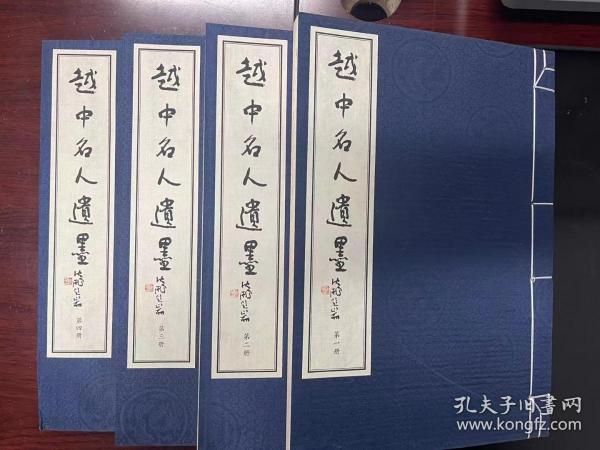 越中名人遺墨
第一册
越中名人遺墨
第二册
越中名人遺墨
第三册
越中名人遺墨
第四册
孔夫子旧書网
kongfz.com